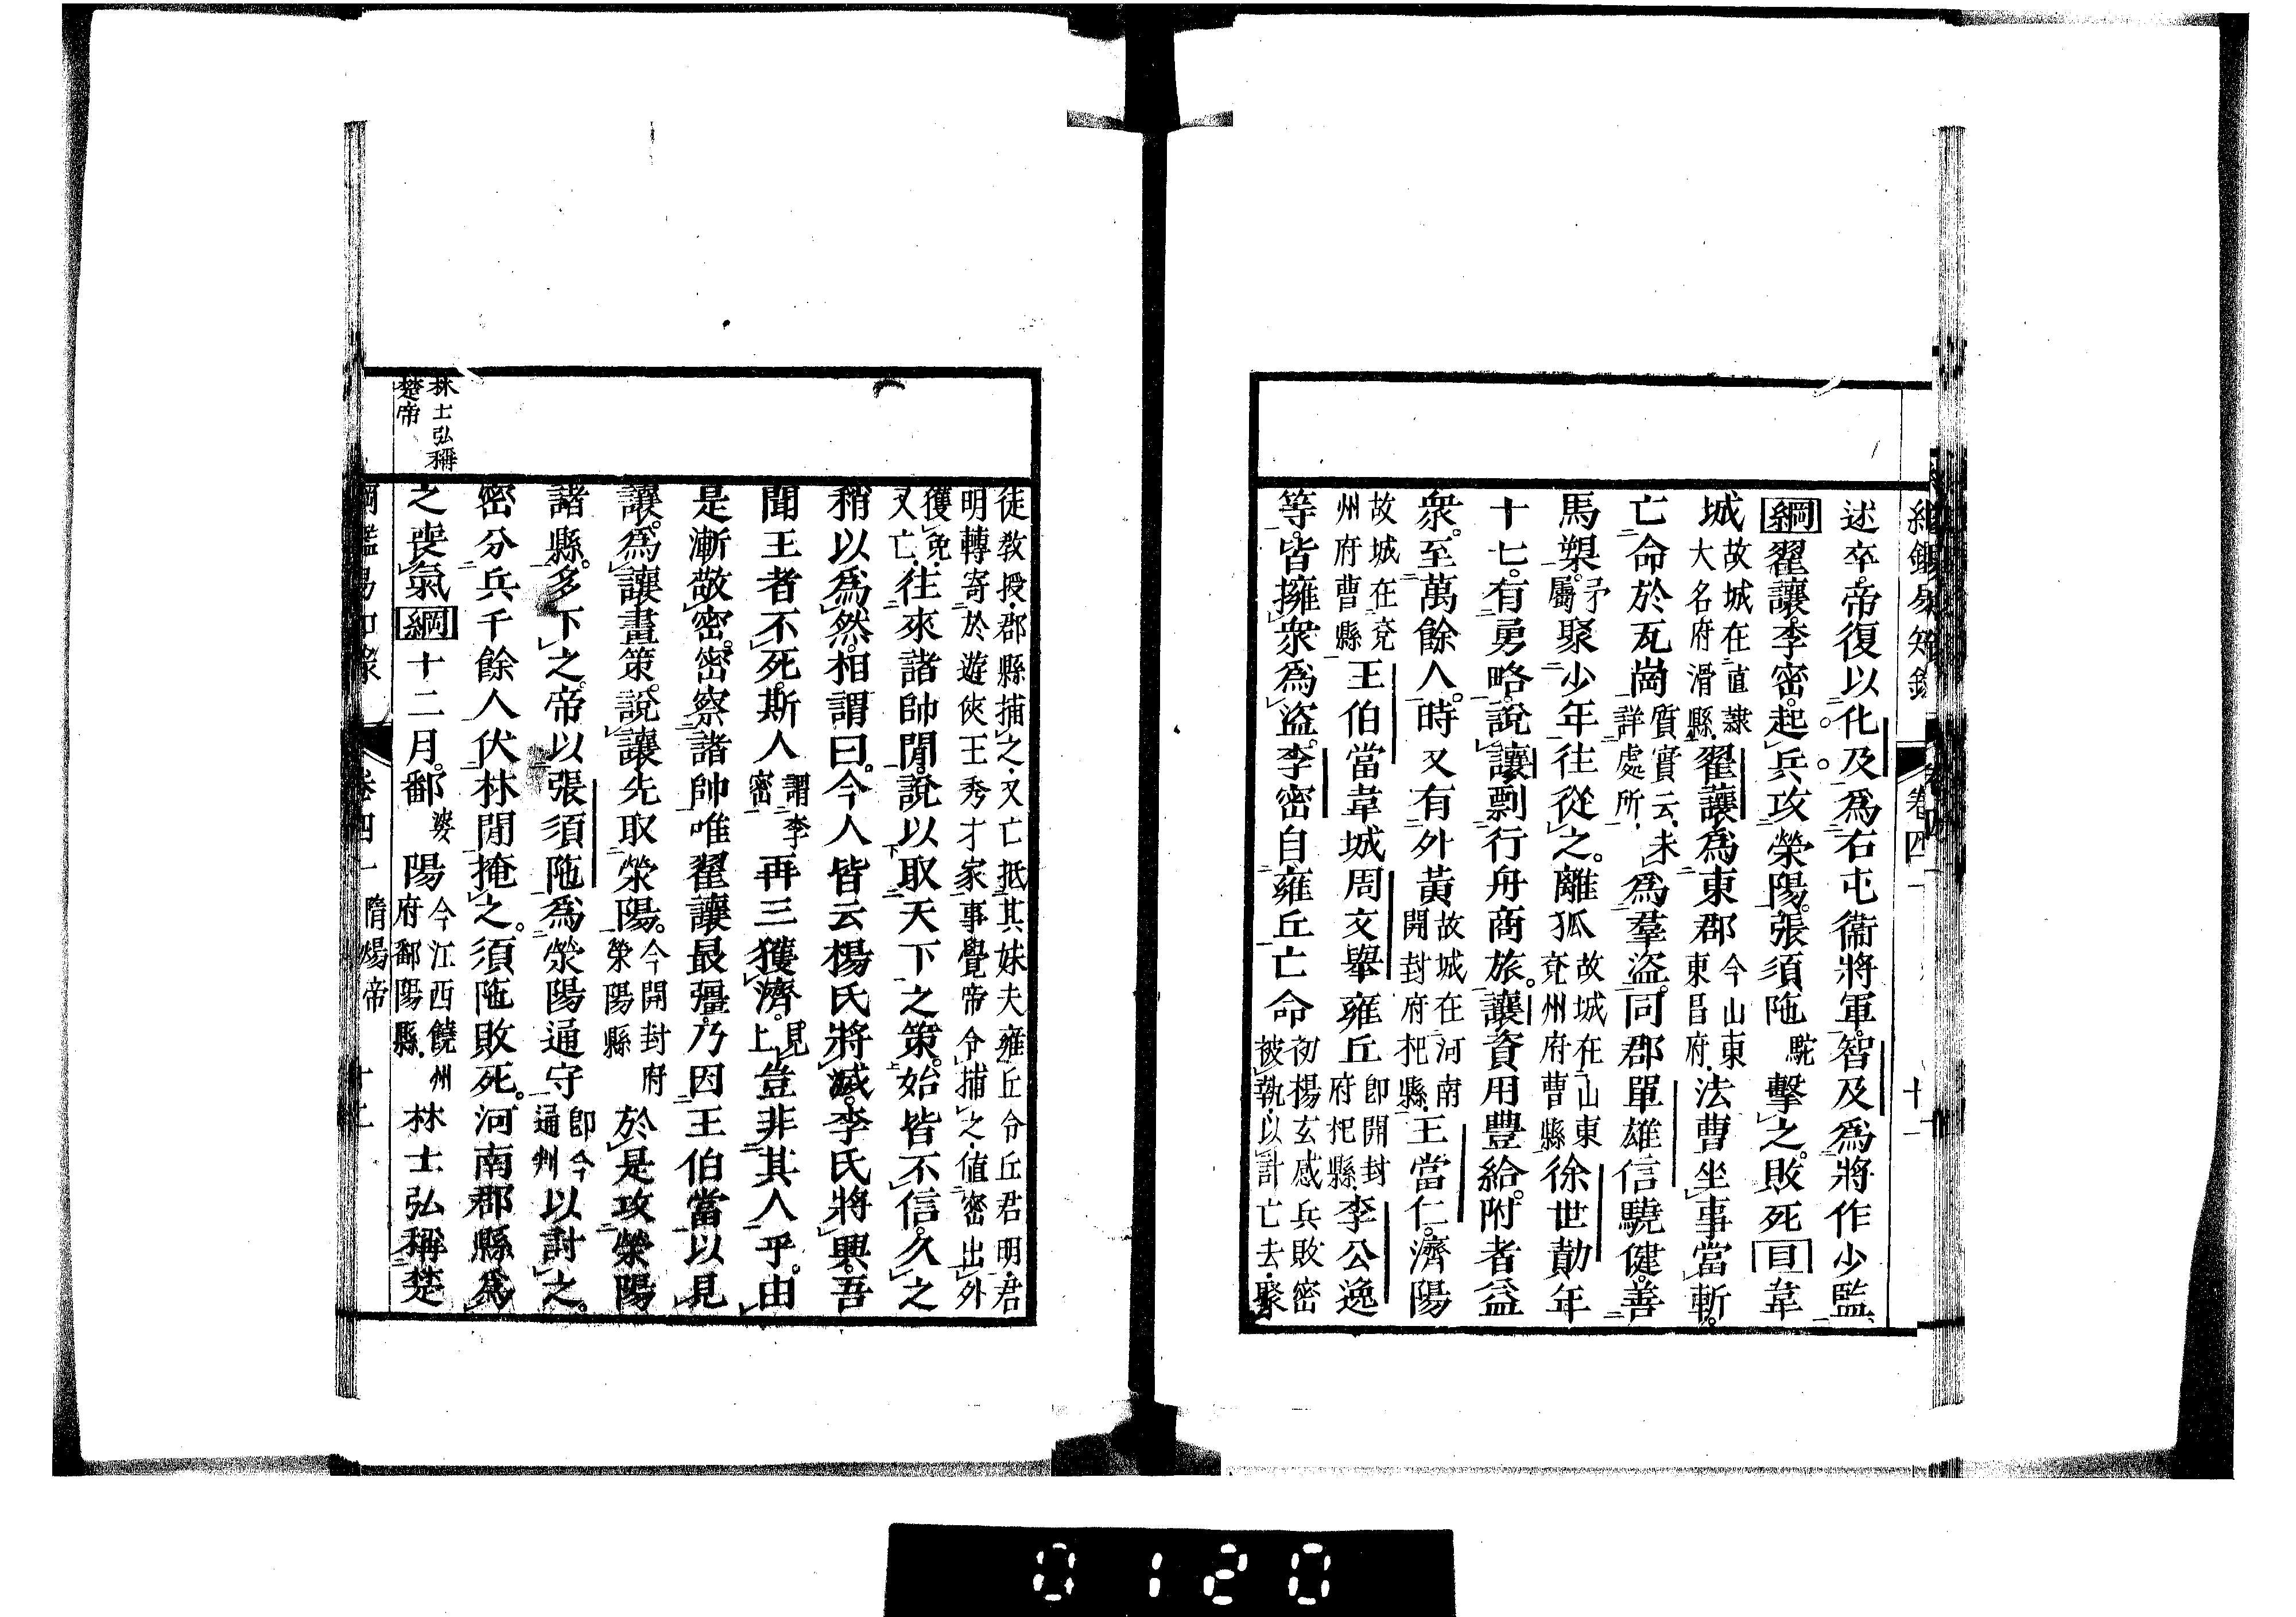 綱鑑易知錄 卷四十 十一
述卒。帝復以化及爲右屯衞將軍。智及爲將作少監。
綱翟讓。李密。起兵攻滎陽。張須陁駝擊之。敗死目韋
城故城在直隸大名府滑縣翟讓爲東郡今山東東昌府法曹坐事當斬。
亡命於瓦崗質實云未詳處所爲羣盜。同郡單雄信驍健。善
馬槊。矛屬聚少年往從之。離狐故城在山東兗州府曹縣徐世勣年
十七。有勇略。說讓剽行舟商旅。讓資用豐給。附者益
衆。至萬餘人。時又有外黃故城在河南開封府杞縣王當仁。濟陽
故城在兗州府曹縣王伯當韋城周文舉雍丘卽開封府杞縣李公逸
等。皆擁衆爲盜。李密自雍丘亡命初楊玄感兵敗密被執以計亡去聚
徒敎授郡縣捕之又亡抵其妹夫雍丘令丘君明君
明轉寄於遊俠王秀才家事覺帝令捕之値密出外
獲免又亡往來諸帥閒。說以取天下之策。始皆不信。久之
稍以爲然。相謂曰。今人皆云楊氏將滅。李氏將興。吾
聞王者不死。斯人謂李密再三獲濟。見上豈非其人乎。由
是漸敬密。密察諸帥唯翟讓最彊。乃因王伯當以見
讓。爲讓畫策。說讓先取滎陽。今開封府滎陽縣於是攻滎陽
諸縣。多下之。帝以張須陁爲滎陽通守卽今通判以討之。
密分兵千餘人伏林閒掩之。須陁敗死。河南郡縣爲
之喪氣綱十二月。鄱婆陽今江西饒州府鄱陽縣林士弘稱楚
林士弘稱楚帝
綱鑑易知錄 卷四十 隋煬帝 十二
0120